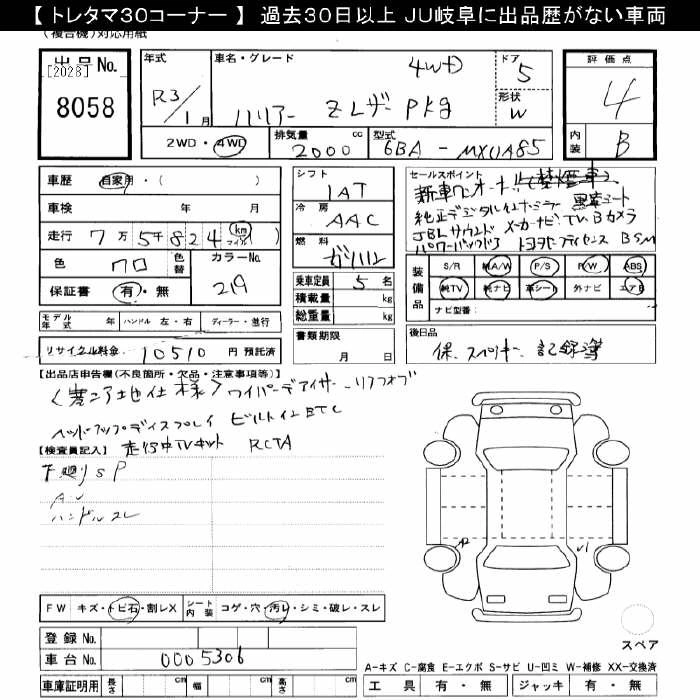 【 トレタマ30コーナー 】 過去30日以上 JU岐阜に出品歴がない車両
(複合機)対応用紙
出品No. [2028] 8058
年式 R3/1月
車名・グレード ハリアー Zレザーpkg 4WD
ドア 5
形状 W
評価点 4
内装 B
2WD・4WD
排気量 2000 cc
型式 6BA-MXUA85
車歴 自家用・( )
車検 年 月
走行 7万5千824 (km マイル)
色 クロ 色替
カラーNo. 219
保証書 有・無
シフト IAT
冷房 AAC
燃料 ガソリン
乗車定員 5名
積載量 kg
総重量 kg
書類期限 月 日
セールスポイント
新車ワンオーナー (禁煙車)
純正デジタルインナーミラー 黒革シート
JBLサウンド メーカーナビ TV Bカメラ
パワーバックドア トヨタセーフティセンス BSM
装備品
S/R A/W P/S P/W ABS
純TV 純ナビ 革シート 外ナビ エアB
ナビ型番:
モデル年式 年 ハンドル 左・右 ディーラー・並行
リサイクル料金 10510 円 預託済
後日品
保、スペアキー、記録簿
【出品店申告欄(不良箇所・欠品・注意事項等)】
〈寒冷地仕様〉ワイパーデアイサー、リアフォグ
ヘッドアップディスプレイ ビルトインETC
走行中TVキット RCTA
【検査員記入】
下廻りSP
AU
ハンドルスレ
FW キズ・トビ石・割レX
シート内装 コゲ・穴・汚レ・シミ・破レ・スレ
登録No.
車台No. 0005306
車庫証明用 長さ cm 幅 cm 高さ cm
P
U1
スペア
A-キズ C-腐食 E-エクボ S-サビ U-凹ミ W-補修 XX-交換済
工具 有・無 ジャッキ 有・無